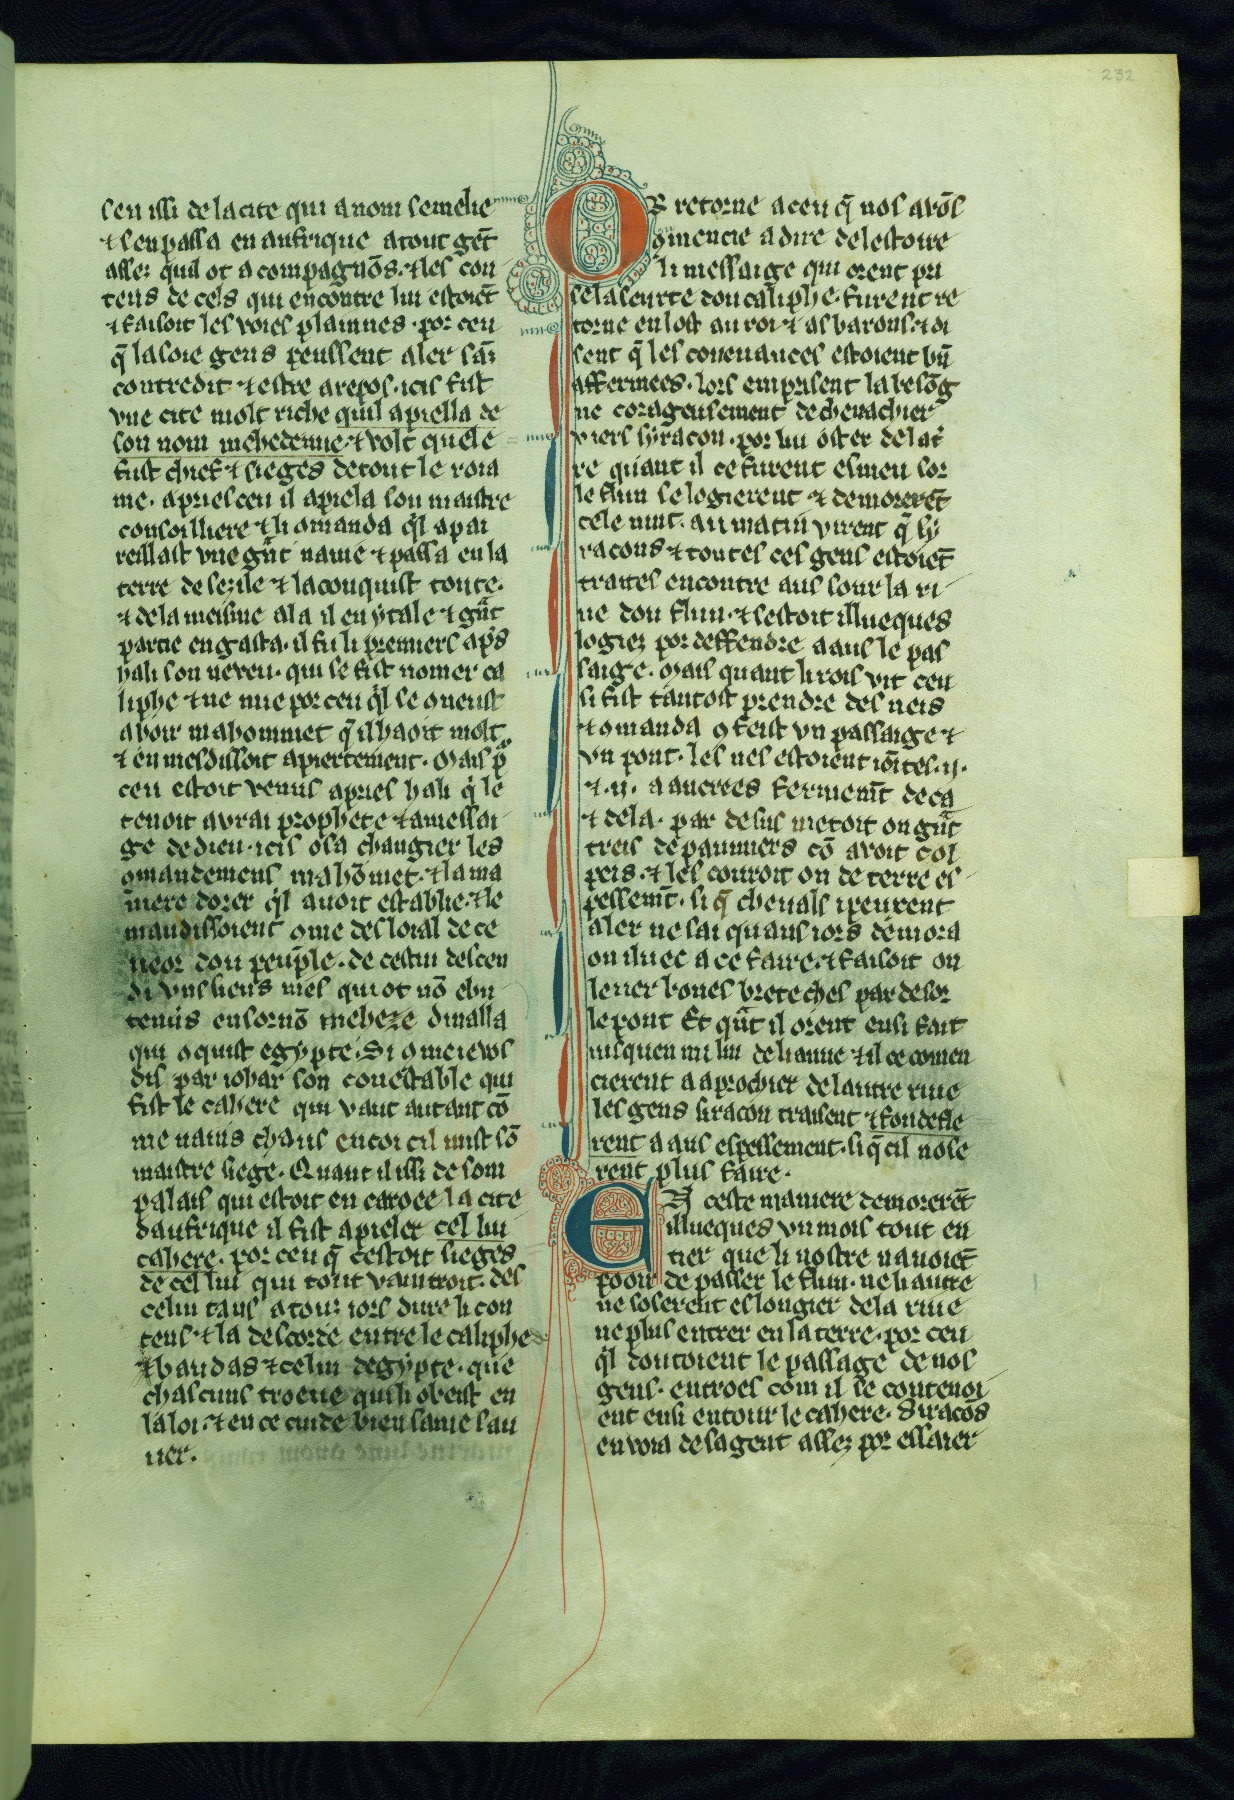 232
sen issi de la cite qui a nom semelie
⁊ sen passa en aufrique a tout gēt
assez quil ot a compagnōs. ⁊ les con
tens de cels qui encontre lui estoiēt
⁊ faisoit les voies plainnes. por ceu
q̄ la soie gens peussent aler sāz
contredit ⁊ estre a repos. icis fist
vne cite molt riche quil apiella de
son nom mehedenne. ⁊ volt quele
fust chief ⁊ sieges de tout le roia
me. apries ceu il apiela son maistre
consoilliere ⁊ li 9manda ql apai
reillast vne gnt nauie ⁊ passa en la
terre de sezile ⁊ la conquist toute.
⁊ de la meisme ala il en ytale ⁊ gnt
partie en gasta. il fu li premiers aps
hali son neveu. qui se fist nomer ca
liphe ⁊ ne mie por ceu ql se 9neust
a hoir mahommet q̄ il haoit molt
⁊ en mesdissoit apiertement. Mais p
ceu estoit venus apries hali q̄ le
tenoit a vrai prophete ⁊ a messai
ge de dieu. icis osa changier les
9mandemens mahōmet. ⁊ la ma
niere dorer ql auoit establie. ⁊ le
maudissoient 9me desloial dece
ueor dou peuple. de cestui descen
di vns siens nies qui ot nō ebu
temins en sornō meheze dmalla
qui 9quist egypte. Si 9me ie vos
dis par iohar son conestable qui
fist le cahere qui vaut autant cō
me uains chaus encor cil mist sō
maistre siege. Quant il issi de som
palais qui estoit en caroee la cite
daufrique il fist apieler cel lui
cahere. por ceu q̄ cestoit sieges
de cel lui qui tout vaintroit. des
celui tans a touz iors dure li con
tens ⁊ la descorde entre le caliphe
⁊ baudas ⁊ celui degypte. que
chascuns troeue qui li obeist en
la loi. ⁊ en ce cuide bien same sau
uer.
OR retorne a ceu q̄ nos avōs
9mencie a dire de lestoire
li messaige qui orent pri
se la seurte dou caliphe. furent re
torne en lost au roi ⁊ as barons. ⁊ di
sent q̄ les couenances estoient bn̄
affermees. lors emprisent la besōg
ne corageusement de chevachier
viers syracon. por lui oster de la t̄
re quant il ce furent esmeu sor
le flun se logierent ⁊ demorerēt
cele nuit. au matin virent q̄ sy
racons ⁊ toutes ces gens estoiēt
traites encontre aus sour la ri
ue dou flun. ⁊ sestoit illueques
logiez por deffendre a aus le pas
saige. Mais quant li rois vit ceu
si fist tantost prendre des neis
⁊ 9manda 9 feist vn passaige ⁊
vn pont. les nes estoient iōītes .ij.
⁊ .ij. a ancrees fermemt de ca
⁊ de la. par desus metoit on gnt
treis de paumiers cō avoit col
peis. ⁊ les couroit on de terre es
pessemt. si q̄ chevals i peurent
aler ne sai quans iors demora
on iluec a ce faire. ⁊ faisoit on
lever bones breteches par desor
le pont Et qnt il orent ensi fait
iusquen mi liu de lianue ⁊ il ce comen
cierent a aprochier de lautre riue
les gens siracon traisent ⁊ fondefle
rent a aus espessement. si q̄ cil nose
rent plus faire.
EN ceste maniere demorerēt
illueques vn mois tout en
tier que li nostre nauoiēt
pooir de passer le flun. ne li autre
ne soserent eslongier de la riue
ne plus entrer en la terre. por ceu
ql doutoient le passage de nos
gens. entroes com il se contenoi
ent ensi entour le cahere. Siracōs
envoia de sa gent assez por essaier